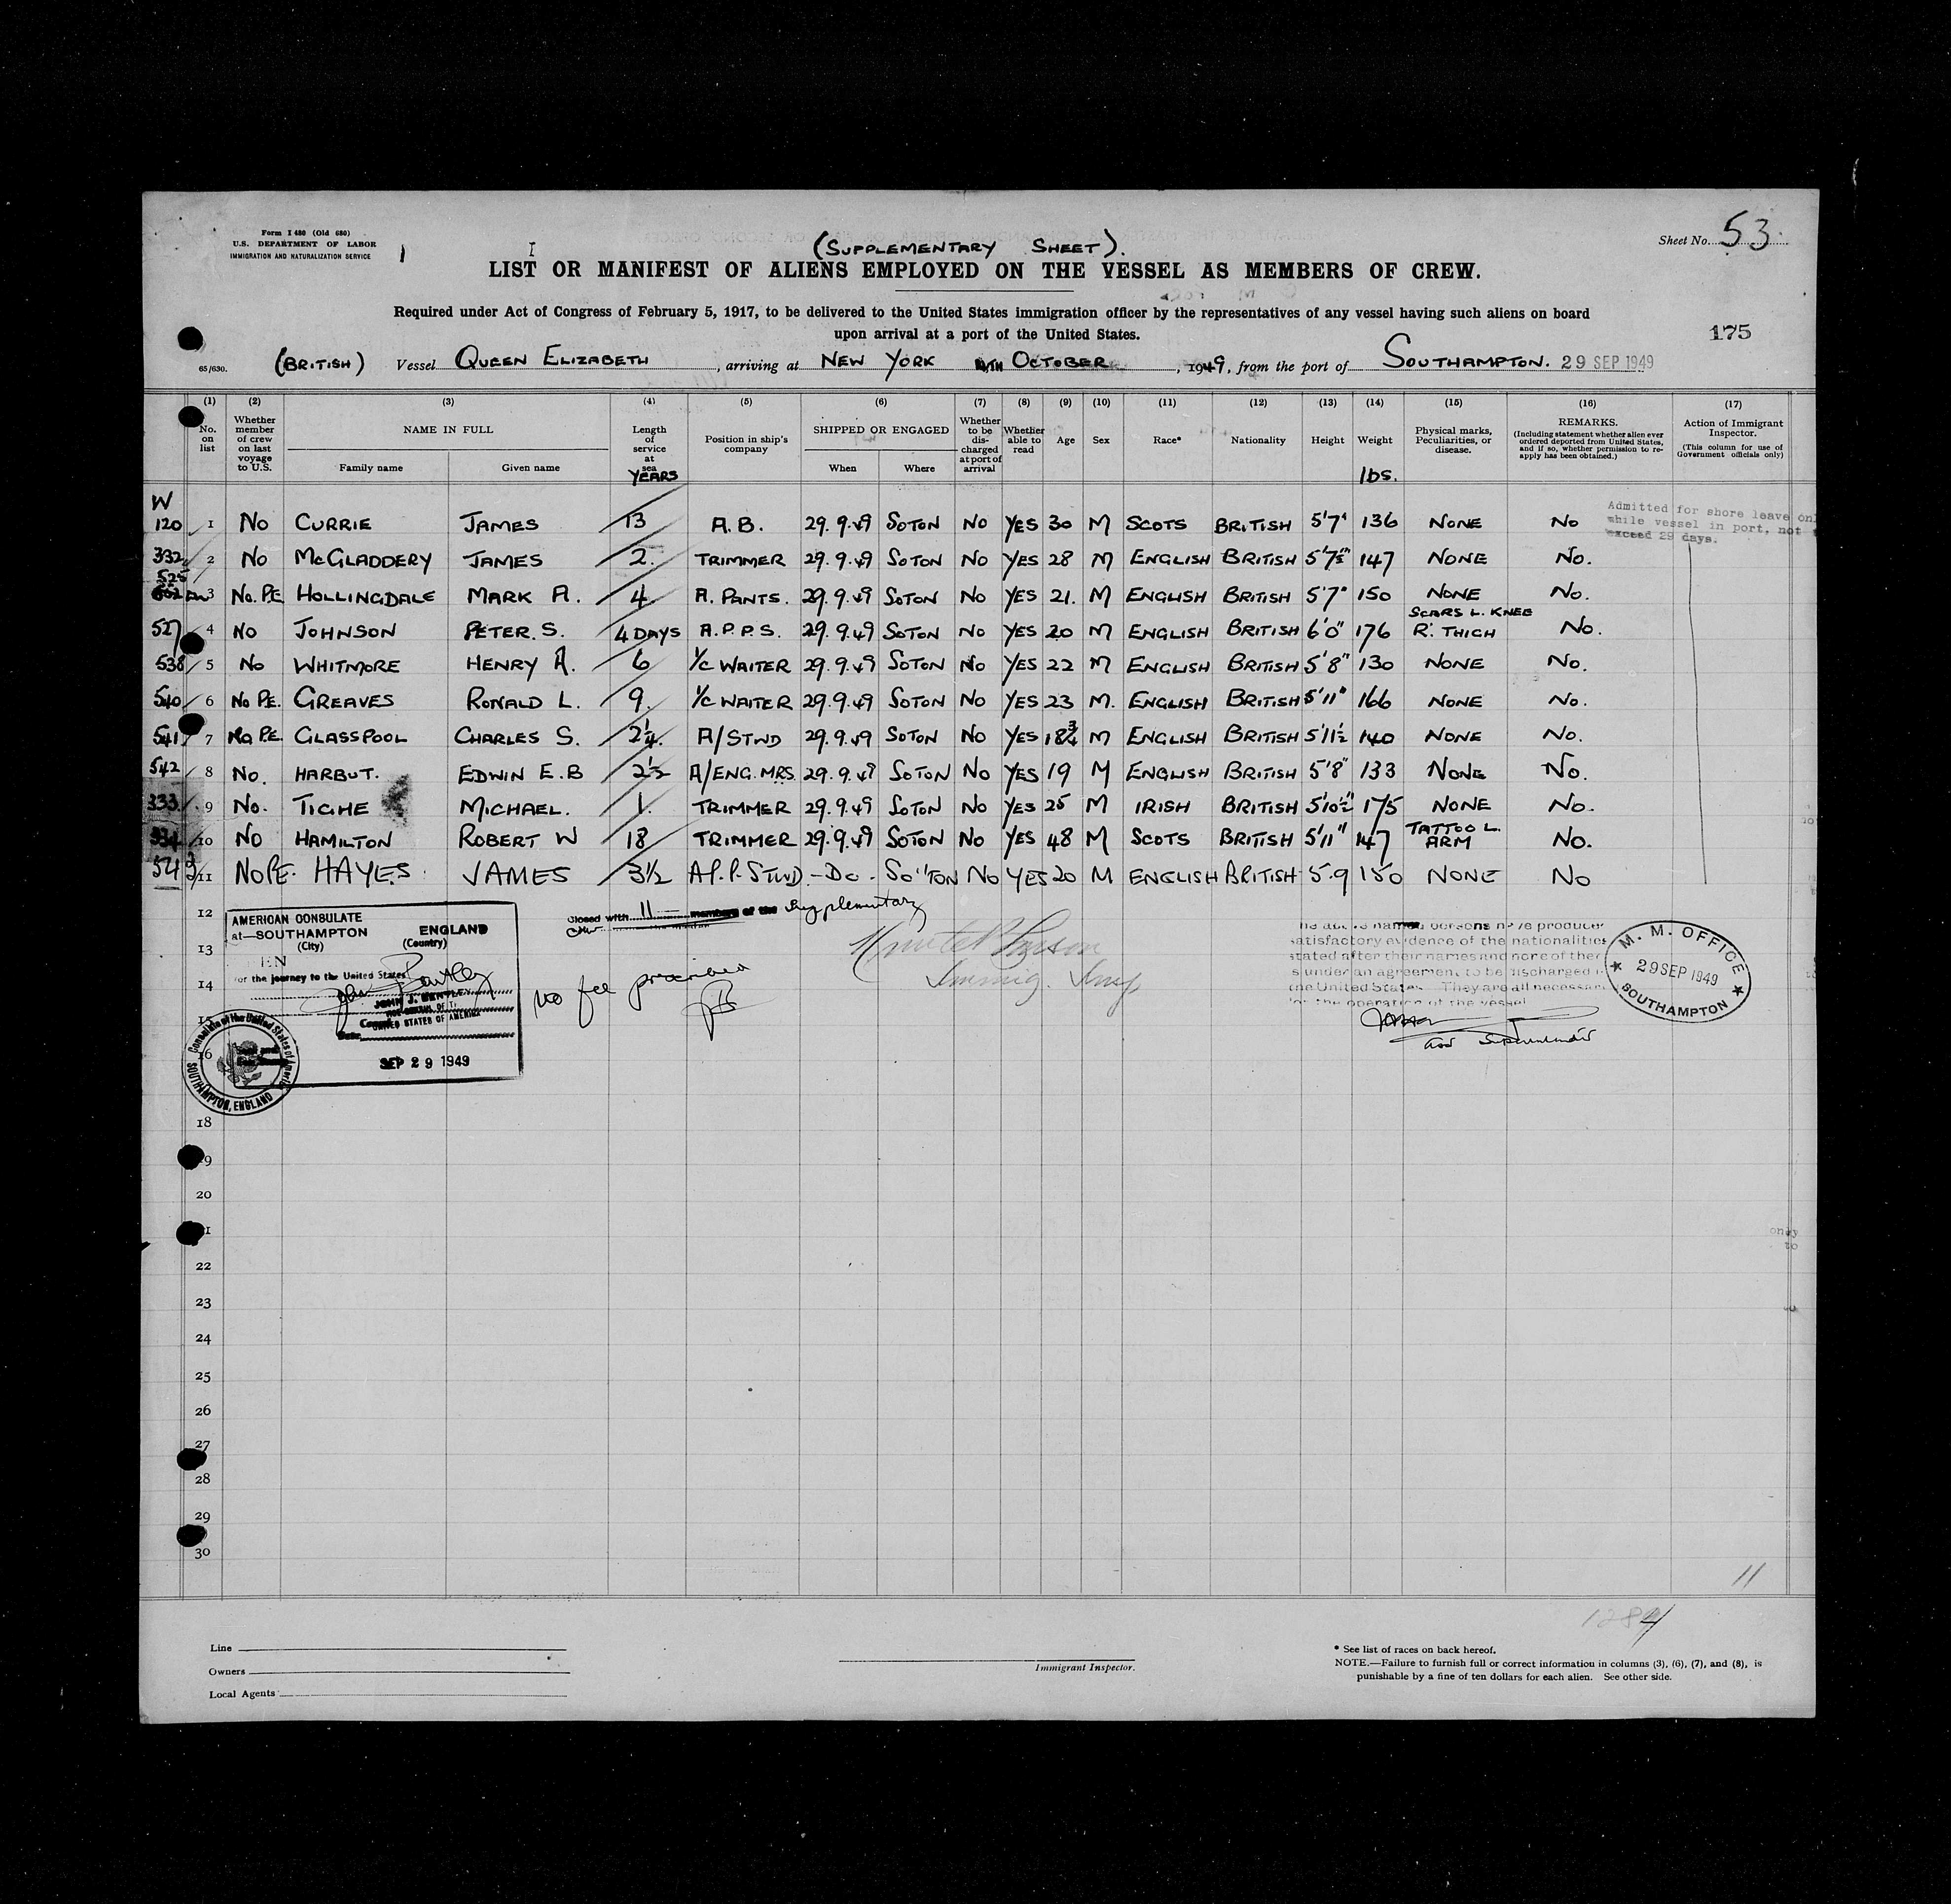 Form I 480 (Old 680)
U. S. DEPARTMENT OF LABOR
IMMIGRATION AND NATURALIZATION SERVICE
1
I
(SUPPLEMENTARY SHEET).
Sheet No. 53.
LIST OR MANIFEST OF ALIENS EMPLOYED ON THE VESSEL AS MEMBERS OF CREW.
Required under Act of Congress of February 5, 1917, to be delivered to the United States immigration officer by the representatives of any vessel having such aliens on board
upon arrival at a port of the United States.
175
65/630.
(BRITISH) Vessel QUEEN ELIZABETH, arriving at NEW YORK OCTOBER, 1949, from the port of SOUTHAMPTON. 29 SEP 1949
(1) (2) (3) (4) (5) (6) (7) (8) (9) (10) (11) (12) (13) (14) (15) (16) (17)
No. on list
Whether member of crew on last voyage to U.S.
NAME IN FULL
Family name
Given name
Length of service at sea
YEARS
Position in ship's company
SHIPPED OR ENGAGED
When
Where
Whether to be discharged at port of arrival
Whether able to read
Age
Sex
Race*
Nationality
Height
Weight
lbs.
Physical marks, Peculiarities, or disease.
REMARKS.
(Including statement whether alien ever ordered deported from United States, and if so, whether permission to re-apply has been obtained.)
Action of Immigrant Inspector.
(This column for use of Government officials only)
W
120 1 NO CURRIE JAMES 13 A.B. 29.9.49 SOTON NO YES 30 M SCOTS BRITISH 5'7" 136 NONE NO
Admitted for shore leave onl
while vessel in port, not
exceed 29 days.
332 2 NO McGLADDERY JAMES 2. TRIMMER 29.9.49 SOTON NO YES 28 M ENGLISH BRITISH 5'7½" 147 NONE NO.
525
3 NO. P.E. HOLLINGDALE MARK A. 4 A. PANTS. 29.9.49 SOTON NO YES 21. M ENGLISH BRITISH 5'7" 150 NONE NO.
527 4 NO JOHNSON PETER. S. 4 DAYS A.P.P.S. 29.9.49 SOTON NO YES 20 M ENGLISH BRITISH 6'0" 176 SCARS L. KNEE R. THIGH NO.
538 5 NO WHITMORE HENRY A. 6 1/C WAITER 29.9.49 SOTON NO YES 22 M ENGLISH BRITISH 5'8" 130 NONE NO.
540 6 NO P.E. GREAVES RONALD L. 9. 1/C WAITER 29.9.49 SOTON NO YES 23 M. ENGLISH BRITISH 5'11" 166 NONE NO.
541 7 NO P.E. GLASSPOOL CHARLES S. 2¼. A/STWD 29.9.49 SOTON NO YES 18¾ M ENGLISH BRITISH 5'11½ 140 NONE NO.
542 8 NO. HARBUT. EDWIN E.B 2½ A/ENG. MRS. 29.9.49 SOTON NO YES 19 M ENGLISH BRITISH 5'8" 133 NONE NO.
333 9 NO. TIGHE MICHAEL. 1. TRIMMER 29.9.49 SOTON NO YES 25 M IRISH BRITISH 5'10½" 175 NONE NO.
334 10 NO HAMILTON ROBERT W 18 TRIMMER 29.9.49 SOTON NO YES 48 M SCOTS BRITISH 5'11" 147 TATTOO L. ARM NO.
543 11 NO P.E. HAYES. JAMES 3½ A.P.P. STWD -DO- SO'TON NO YES 20 M ENGLISH BRITISH 5.9 150 NONE NO
12
Closed with 11 members of the Supplementary
AMERICAN CONSULATE
at—SOUTHAMPTON ENGLAND
(City) (Country)
13
EN
for the journey to the United States
14
JOHN J. BENTLEY
UNITED STATES OF AMERICA
SEP 29 1949
Consulate of the United States of America
SOUTHAMPTON, ENGLAND
no fee prescribed
JB
Immig. Insp
satisfactory evidence of the nationalities
stated after their names and none of them
is under an agreement to be discharged
the United States. They are all necessary
for the operation of the vessel
M. M. OFFICE
29 SEP 1949
SOUTHAMPTON
15
16
18
19
20
21
22
23
24
25
26
27
28
29
30
only
to
11
1284
Line
Owners
Local Agents
Immigrant Inspector.
* See list of races on back hereof.
NOTE.—Failure to furnish full or correct information in columns (3), (6), (7), and (8), is
punishable by a fine of ten dollars for each alien. See other side.